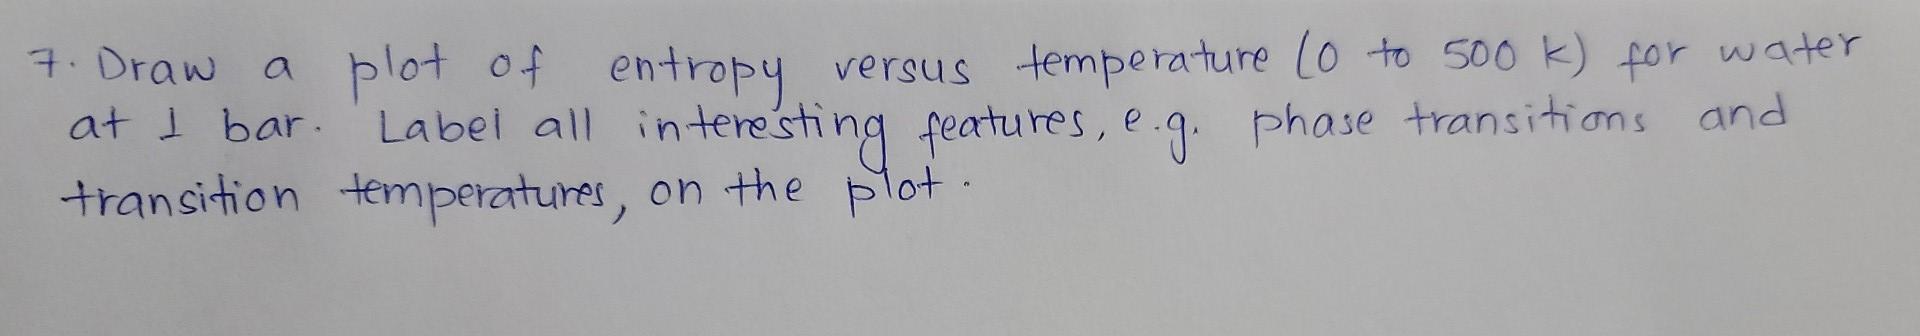 7. Draw a plot of entropy versus temperature (0 to 500 K) for water
at 1 bar. Label all interesting features, e.g. phase transitions and
transition temperatures, on the plot.